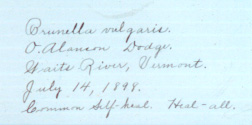 Brunella vulgaris.
O. Alanson Dodge.
Waits River, Vermont.
July 14, 1898.
Common Self-heal. Heal-all.